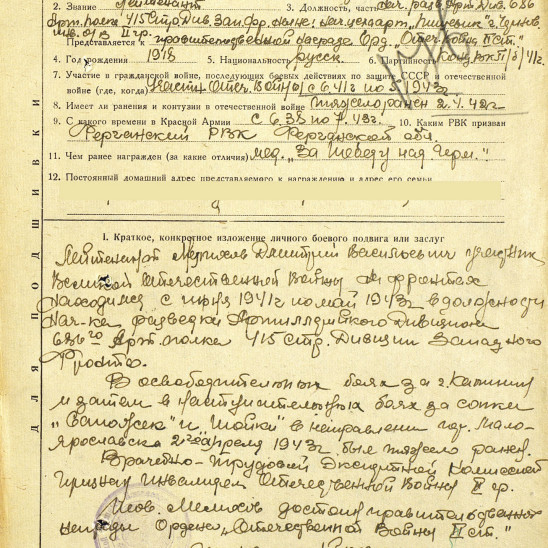 2. Звание Лейтенант 3. Должность, часть нач. разв. Арт. Див. 686
Арт. полка 415 Стр. Див. Зап. фр.
инв. О/В II гр.
Представляется к правительственной награде Орд. Отеч. Войны II ст."
4. Год рождения 1918 5. Национальность русск 6. Партийность
7. Участие в гражданской войне, последующих боевых действиях по защите СССР и отечественной
войне (где, когда) Участн. Отеч. Войны с 6.41 г по 1943 г
8. Имеет ли ранения и контузии в отечественной войне тяжело ранен 2.4.42 г
9. С какого времени в Красной Армии с 6.38 по 7.43 г. 10. Каким РВК призван
Ферганский РВК Ферганской обл.
11. Чем ранее награжден (за какие отличия) мед. „За победу над Герм."
12. Постоянный домашний адрес представляемого к награждению и адрес его семьи
для подшивки
I. Краткое, конкретное изложение личного боевого подвига или заслуг
Лейтенант Дмитрий Васильевич участник
Великой Отечественной Войны на фронтах
находился с июня 1941 г по май 1943 г в должности
нач-ка разведки Артиллерийского Дивизиона
686го Арт. полка 415 стр. Дивизии Западного
Фронта.
В освободительных боях за г. Калинин
и затем в наступительных боях за сопки
и в направлении гор. Мало-
ярославска 2го апреля 1943 г. был тяжело ранен.
Врачебно-трудовой Экспертной Комиссией
признан инвалидом Отечественной Войны II гр.
достоин правительственной
награды Ордена „Отечественной Войны II ст."